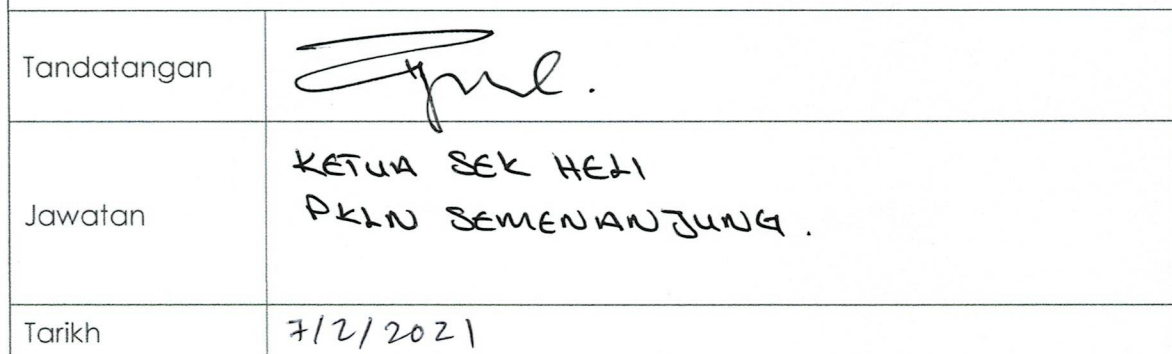 Tandatangan
Jawatan
KETUA SEK HELI
PKLN SEMENANJUNG.
Tarikh
7/2/2021